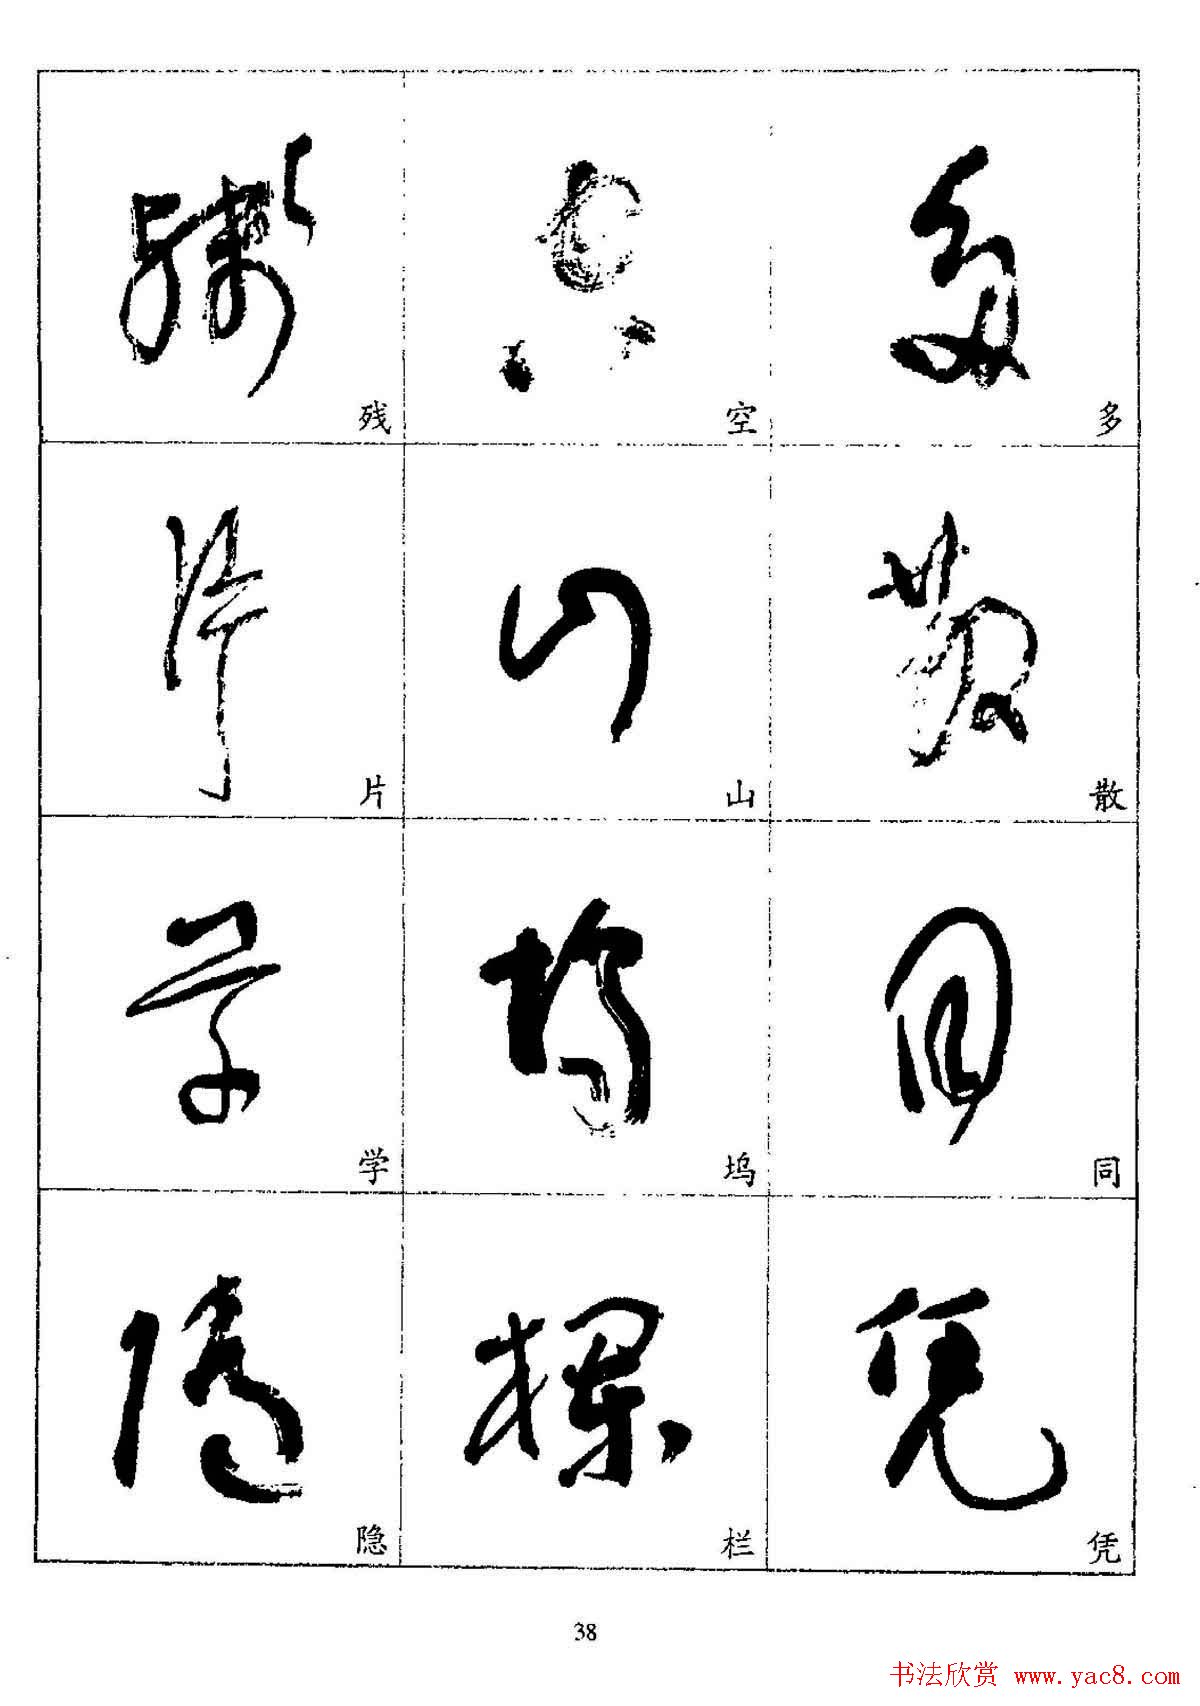 残 空 多
片 山 散
学 坞 同
隐 栏 凭
38
书法欣赏 www.yac8.com